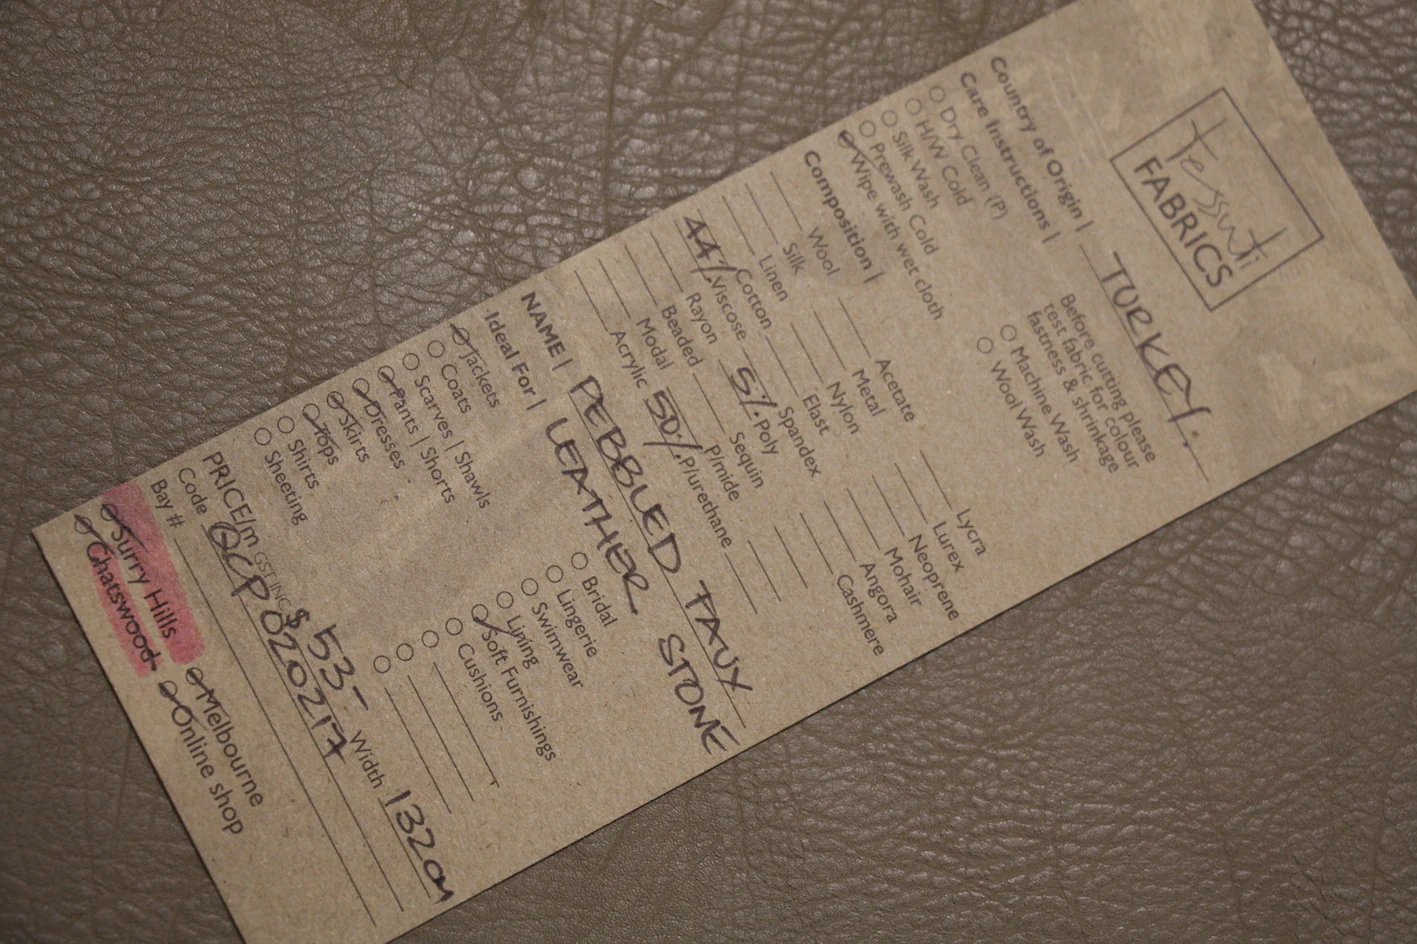 tessuti
FABRICS
Country of Origin | TURKEY.
Care Instructions |
Before cutting please
test fabric for colour
fastness & shrinkage
Dry Clean (P)
H/W Cold
Silk Wash
Prewash Cold
Wipe with wet cloth
Machine Wash
Wool Wash
Composition |
Wool Acetate Lycra
Silk Metal Lurex
Linen Nylon Neoprene
Cotton Elast Mohair
44% Viscose Spandex Angora
Rayon 5% Poly Cashmere
Beaded Sequin
Modal P/mide
Acrylic 50% P/urethane
NAME | PEBBLED TAUX
LEATHER STONE
Ideal For |
Jackets Bridal
Coats Lingerie
Scarves | Shawls Swimwear
Pants | Shorts Lining
Dresses Soft Furnishings
Skirts Cushions
Tops
Shirts
Sheeting
PRICE/m GST INC $53- Width 132cm
Code QCP020217
Bay #
Surry Hills Melbourne
Chatswood Online shop